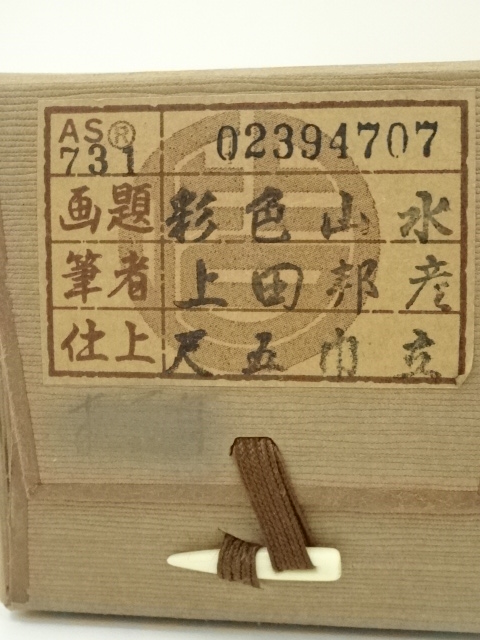 AS®
731 02394707
画題 彩色山水
筆者 上田邦彦
仕上 尺五巾立